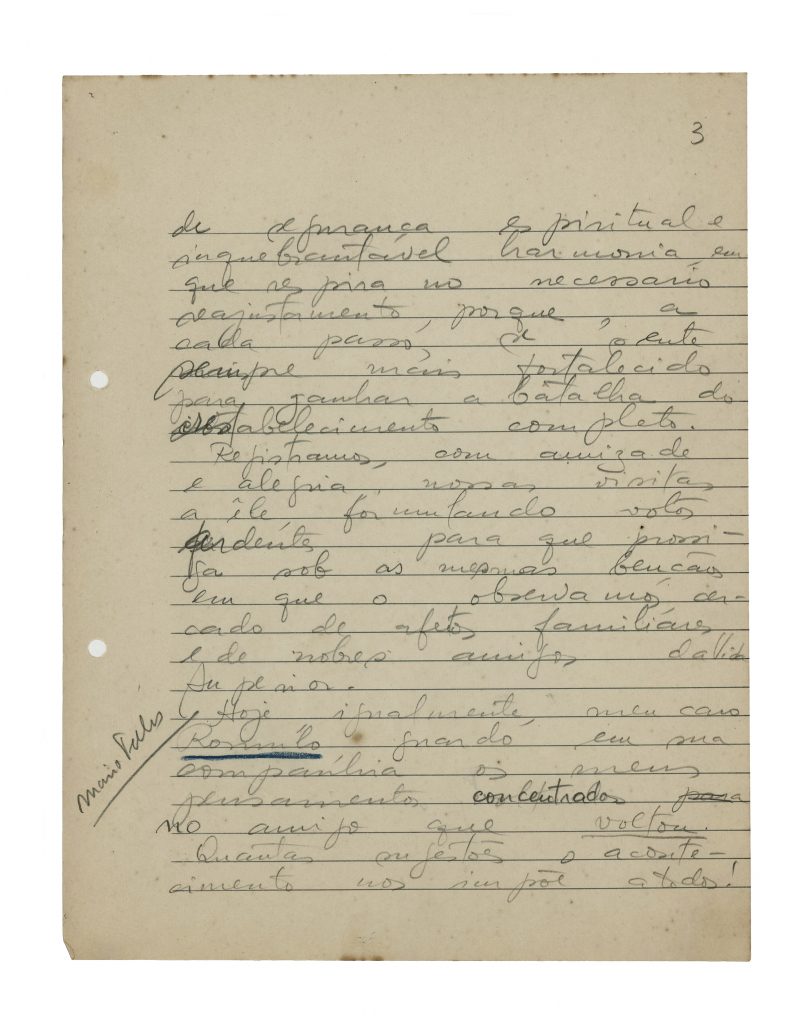 3
de segurança espiritual e
inquebrantável harmonia, em
que respira no necessario
reajustamento, porque, a
cada passo, se sente
sempre mais fortalecido
para ganhar a batalha do
restabelecimento completo.
Registramos, com amizade
e alegria, nossas visitas
a êle formulando votos
ardentes para que prossi-
ga sob as mesmas bençãos
em que o observamos, cer-
cado de afetos familiáres
e de nobres amigos da Vida
Superior.
Hoje igualmente, meu caro
Romulo guardo em sua
companhia os meus
pensamentos concentrados para
no amigo que voltou.
Quantas sugestões o aconte-
cimento nos impõe a todos!
Mario Telles